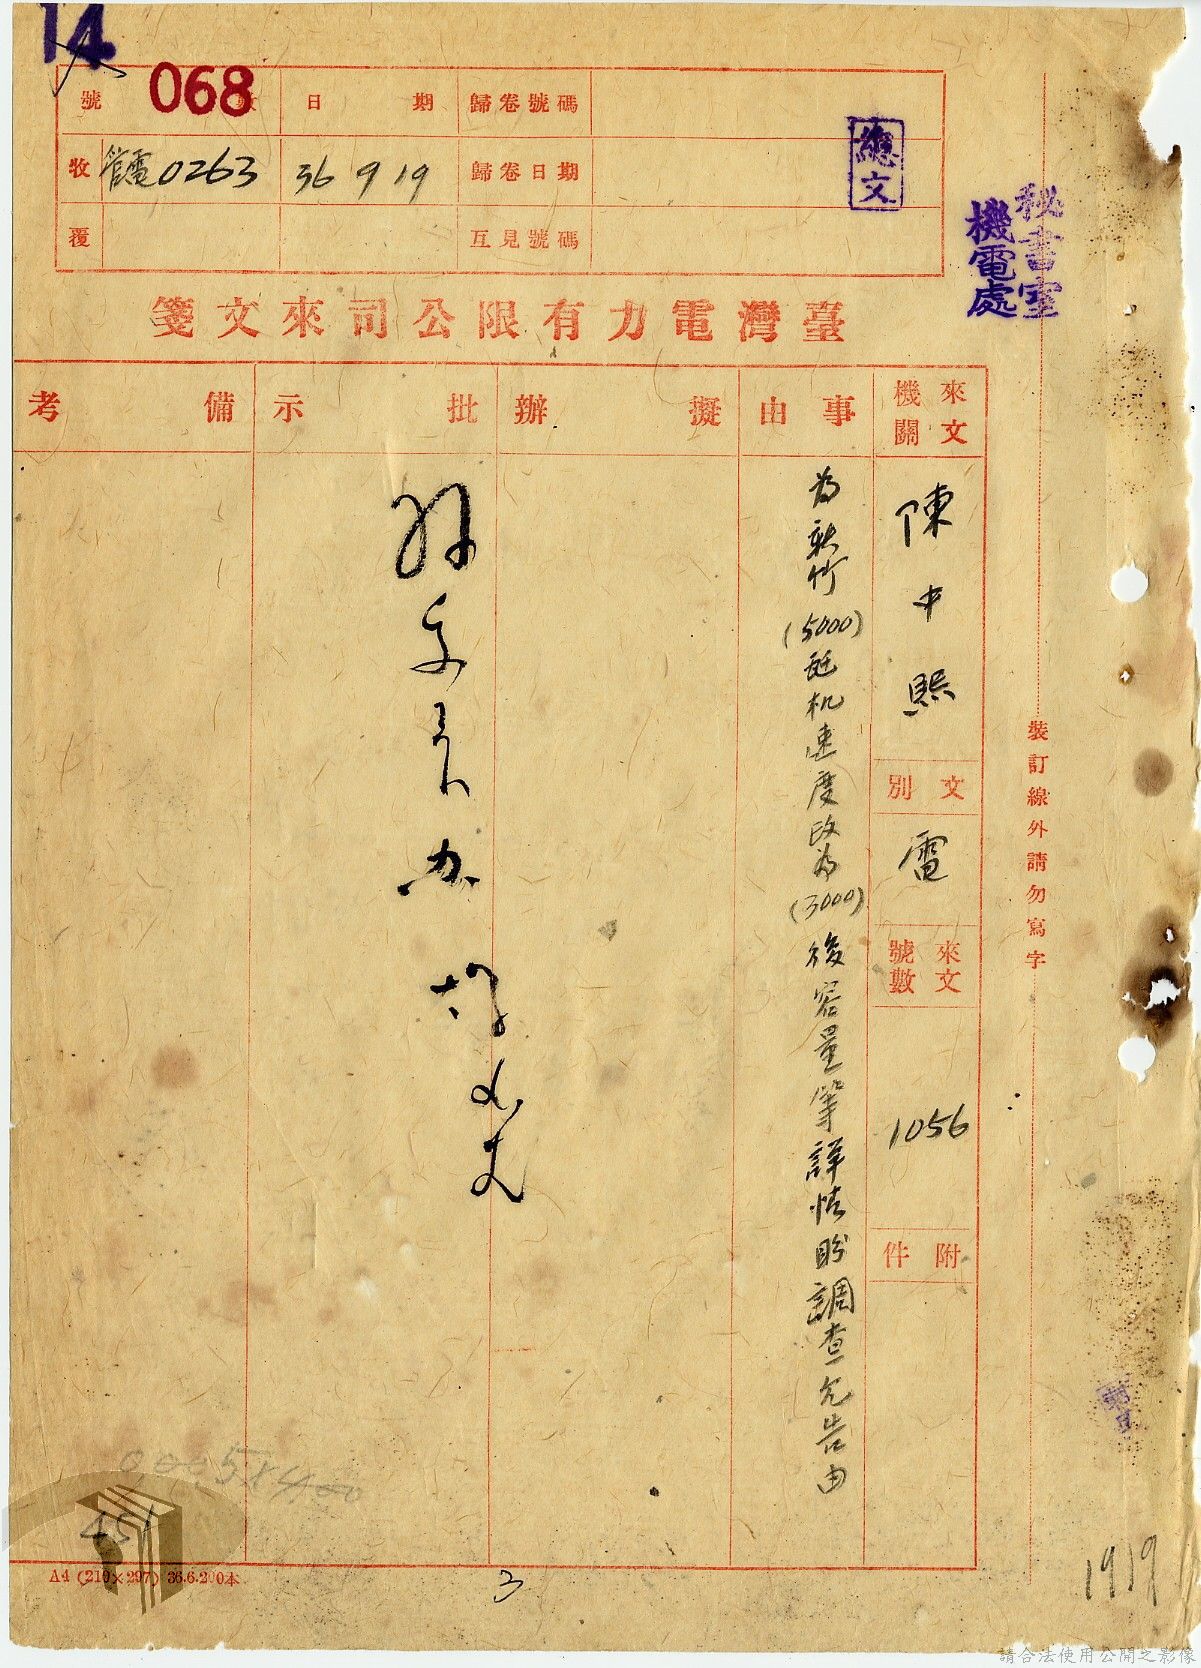 14
068
號 數
日 期
歸卷號碼
收
管電0263
36 9 19
歸卷日期
覆
互見號碼
總文
秘書室
機電處
臺灣電力有限公司來文箋
來文機關
事由
擬辦
批示
備考
陳中熙
文別
電
來文號數
1056
附件
為新竹(5000)瓩机速度改為(3000)後容量等詳情盼調查允告由
裝訂線外請勿寫字
451
A4 (210×297) 36.6.200本
3
1919
請合法使用公開之影像